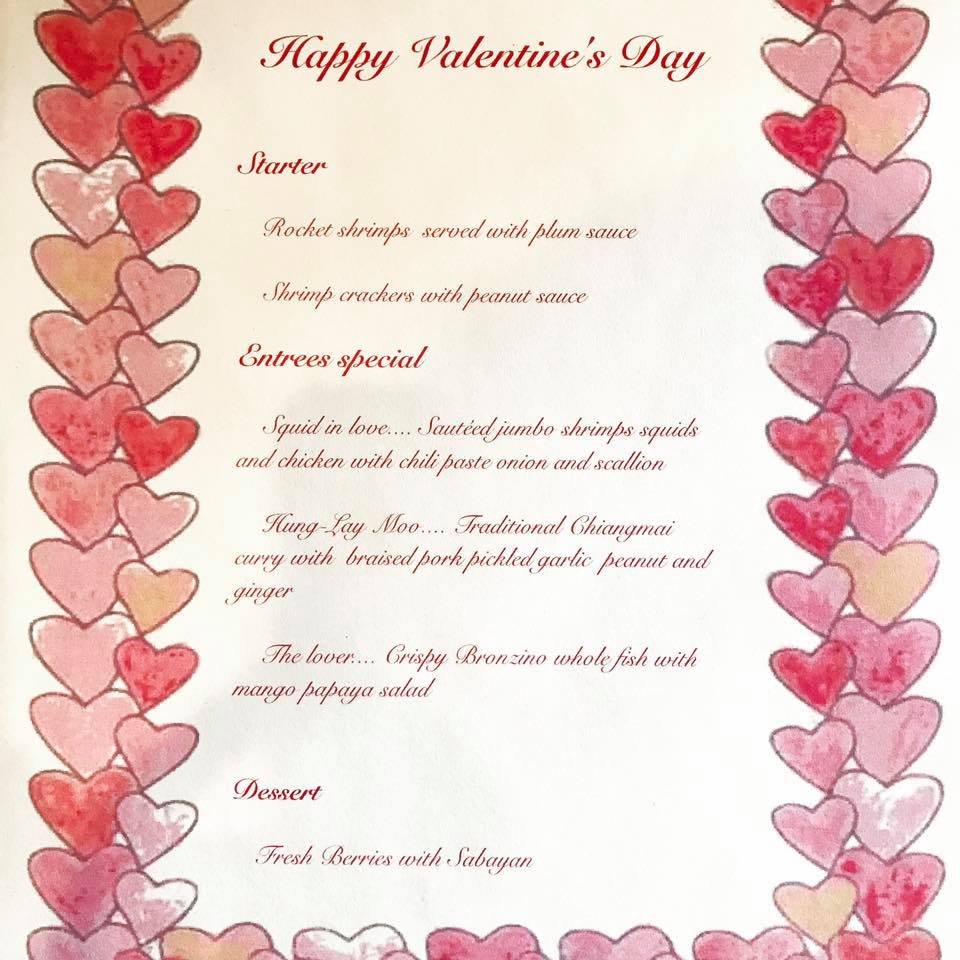 Happy Valentine's Day
Starter
Rocket shrimps served with plum sauce
Shrimp crackers with peanut sauce
Entrees special
Squid in love.... Sautéed jumbo shrimps squids
and chicken with chili paste onion and scallion
Hung-Lay Moo.... Traditional Chiangmai
curry with braised pork pickled garlic peanut and
ginger
The lover.... Crispy Bronzino whole fish with
mango papaya salad
Dessert
Fresh Berries with Sabayan